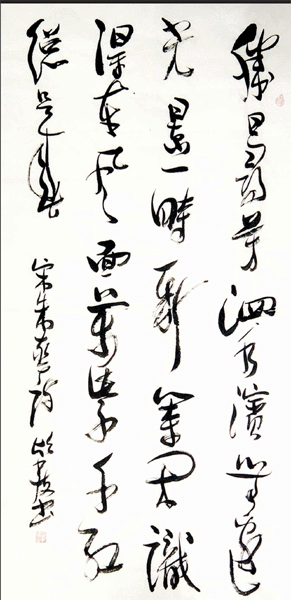 勝日尋芳泗水濱無邊
光景一時新等閑識
得東風面萬紫千紅
總是春 宋朱熹詩 書